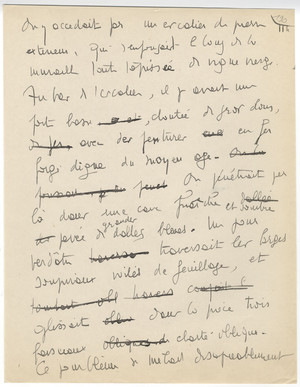 on y accédait par un escalier de pierre
extérieur, qui s'enfonçait le long de la
muraille toute tapissée de vigne vierge.
Au bas de l'escalier, il y avait une
porte basse, cloutée de gros clous,
avec des pentures en fer
forgé digne du moyen age.
On pénétrait par
là dans une cave fraîche et voutée
pavée de grandes dalles bleues. Un jour
verdâtre traversait les larges
soupiraux voilés de feuillage, et
glissait dans la pièce trois
faisceaux de clarté oblique.
Ce jour bleu se mêlait désagréablement